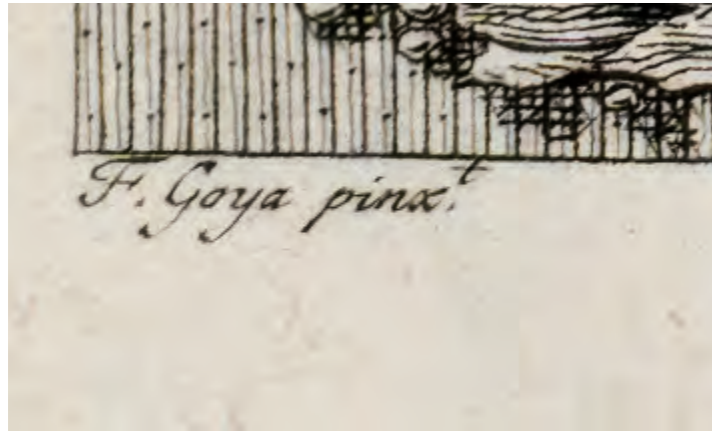 F. Goya pinx.t